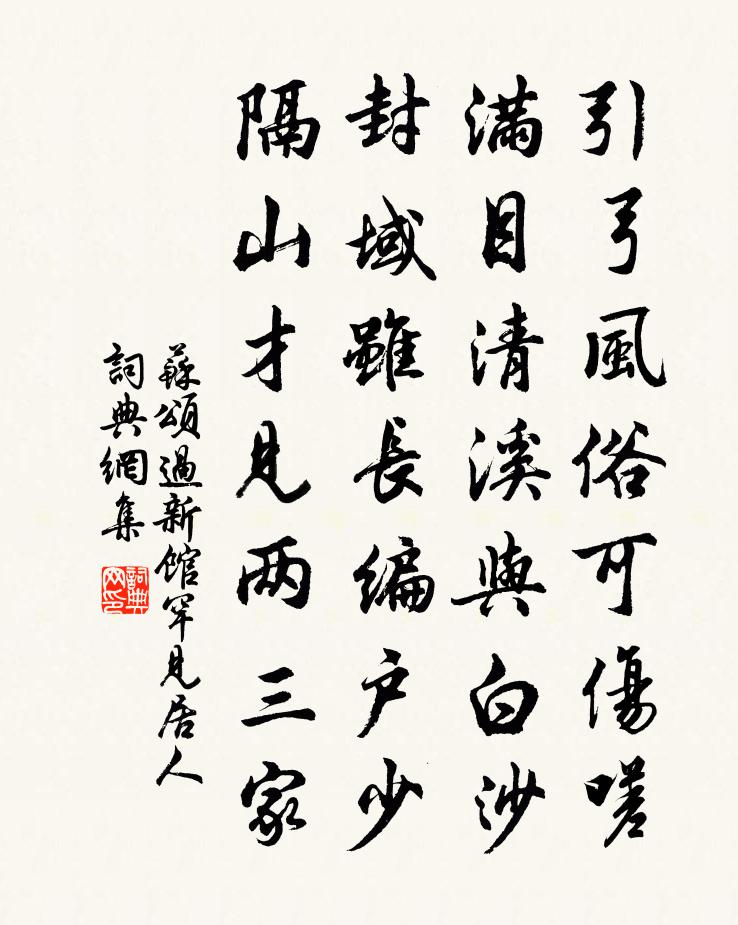 引弓風俗可傷嗟
滿目清溪與白沙
封域雖長編户少
隔山才見两三家
蘇頌過新館罕見居人
詞典網集
詞典
网印